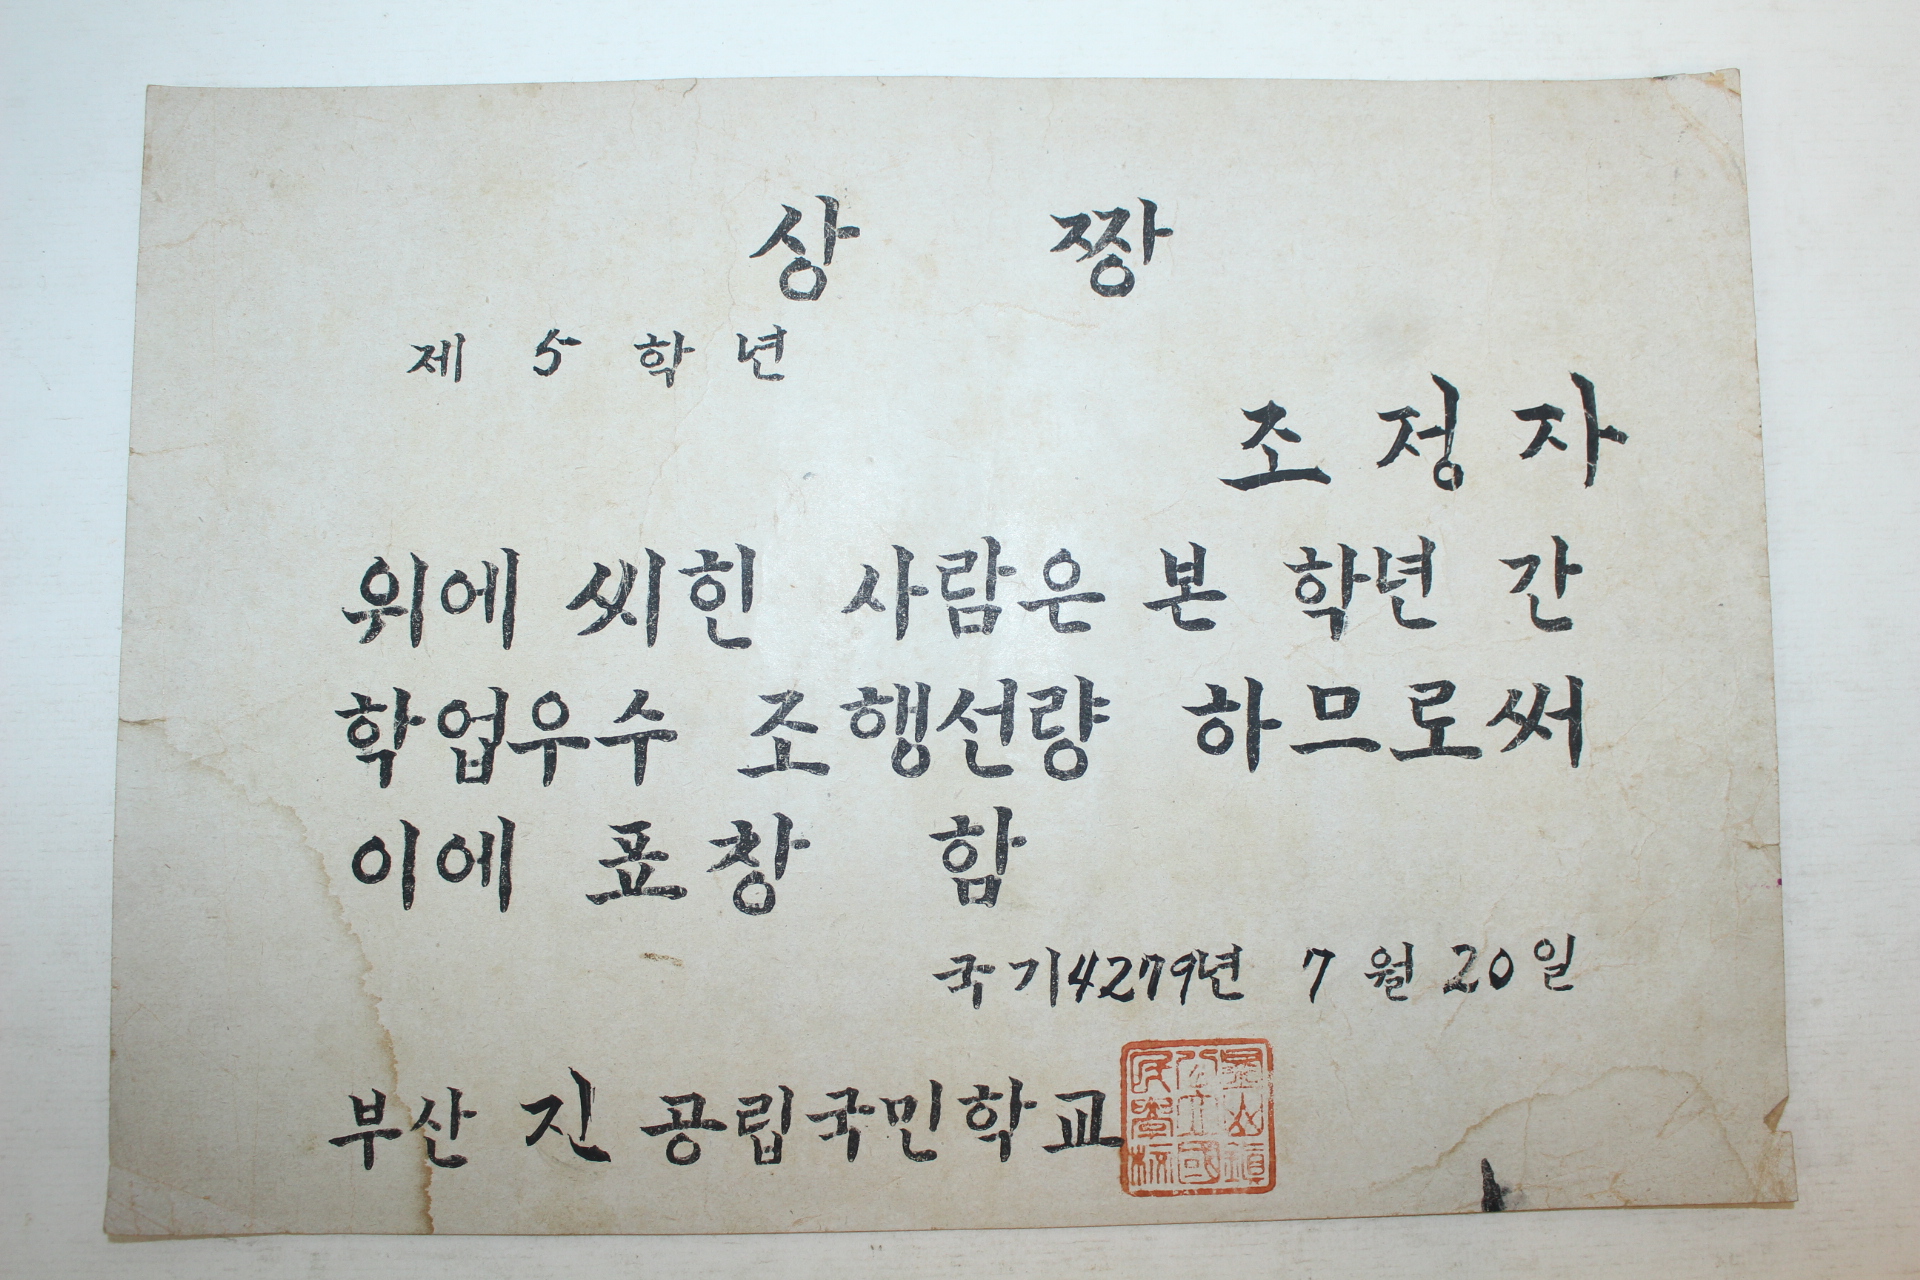 상 짱
제 5 학 년
조 정 자
위에 씨힌 사람은 본 학년 간
학업우수 조행선량 하므로써
이에 표창 함
국기4279년 7월 20일
부산 진 공립국민학교
釜山鎭公立國民學校